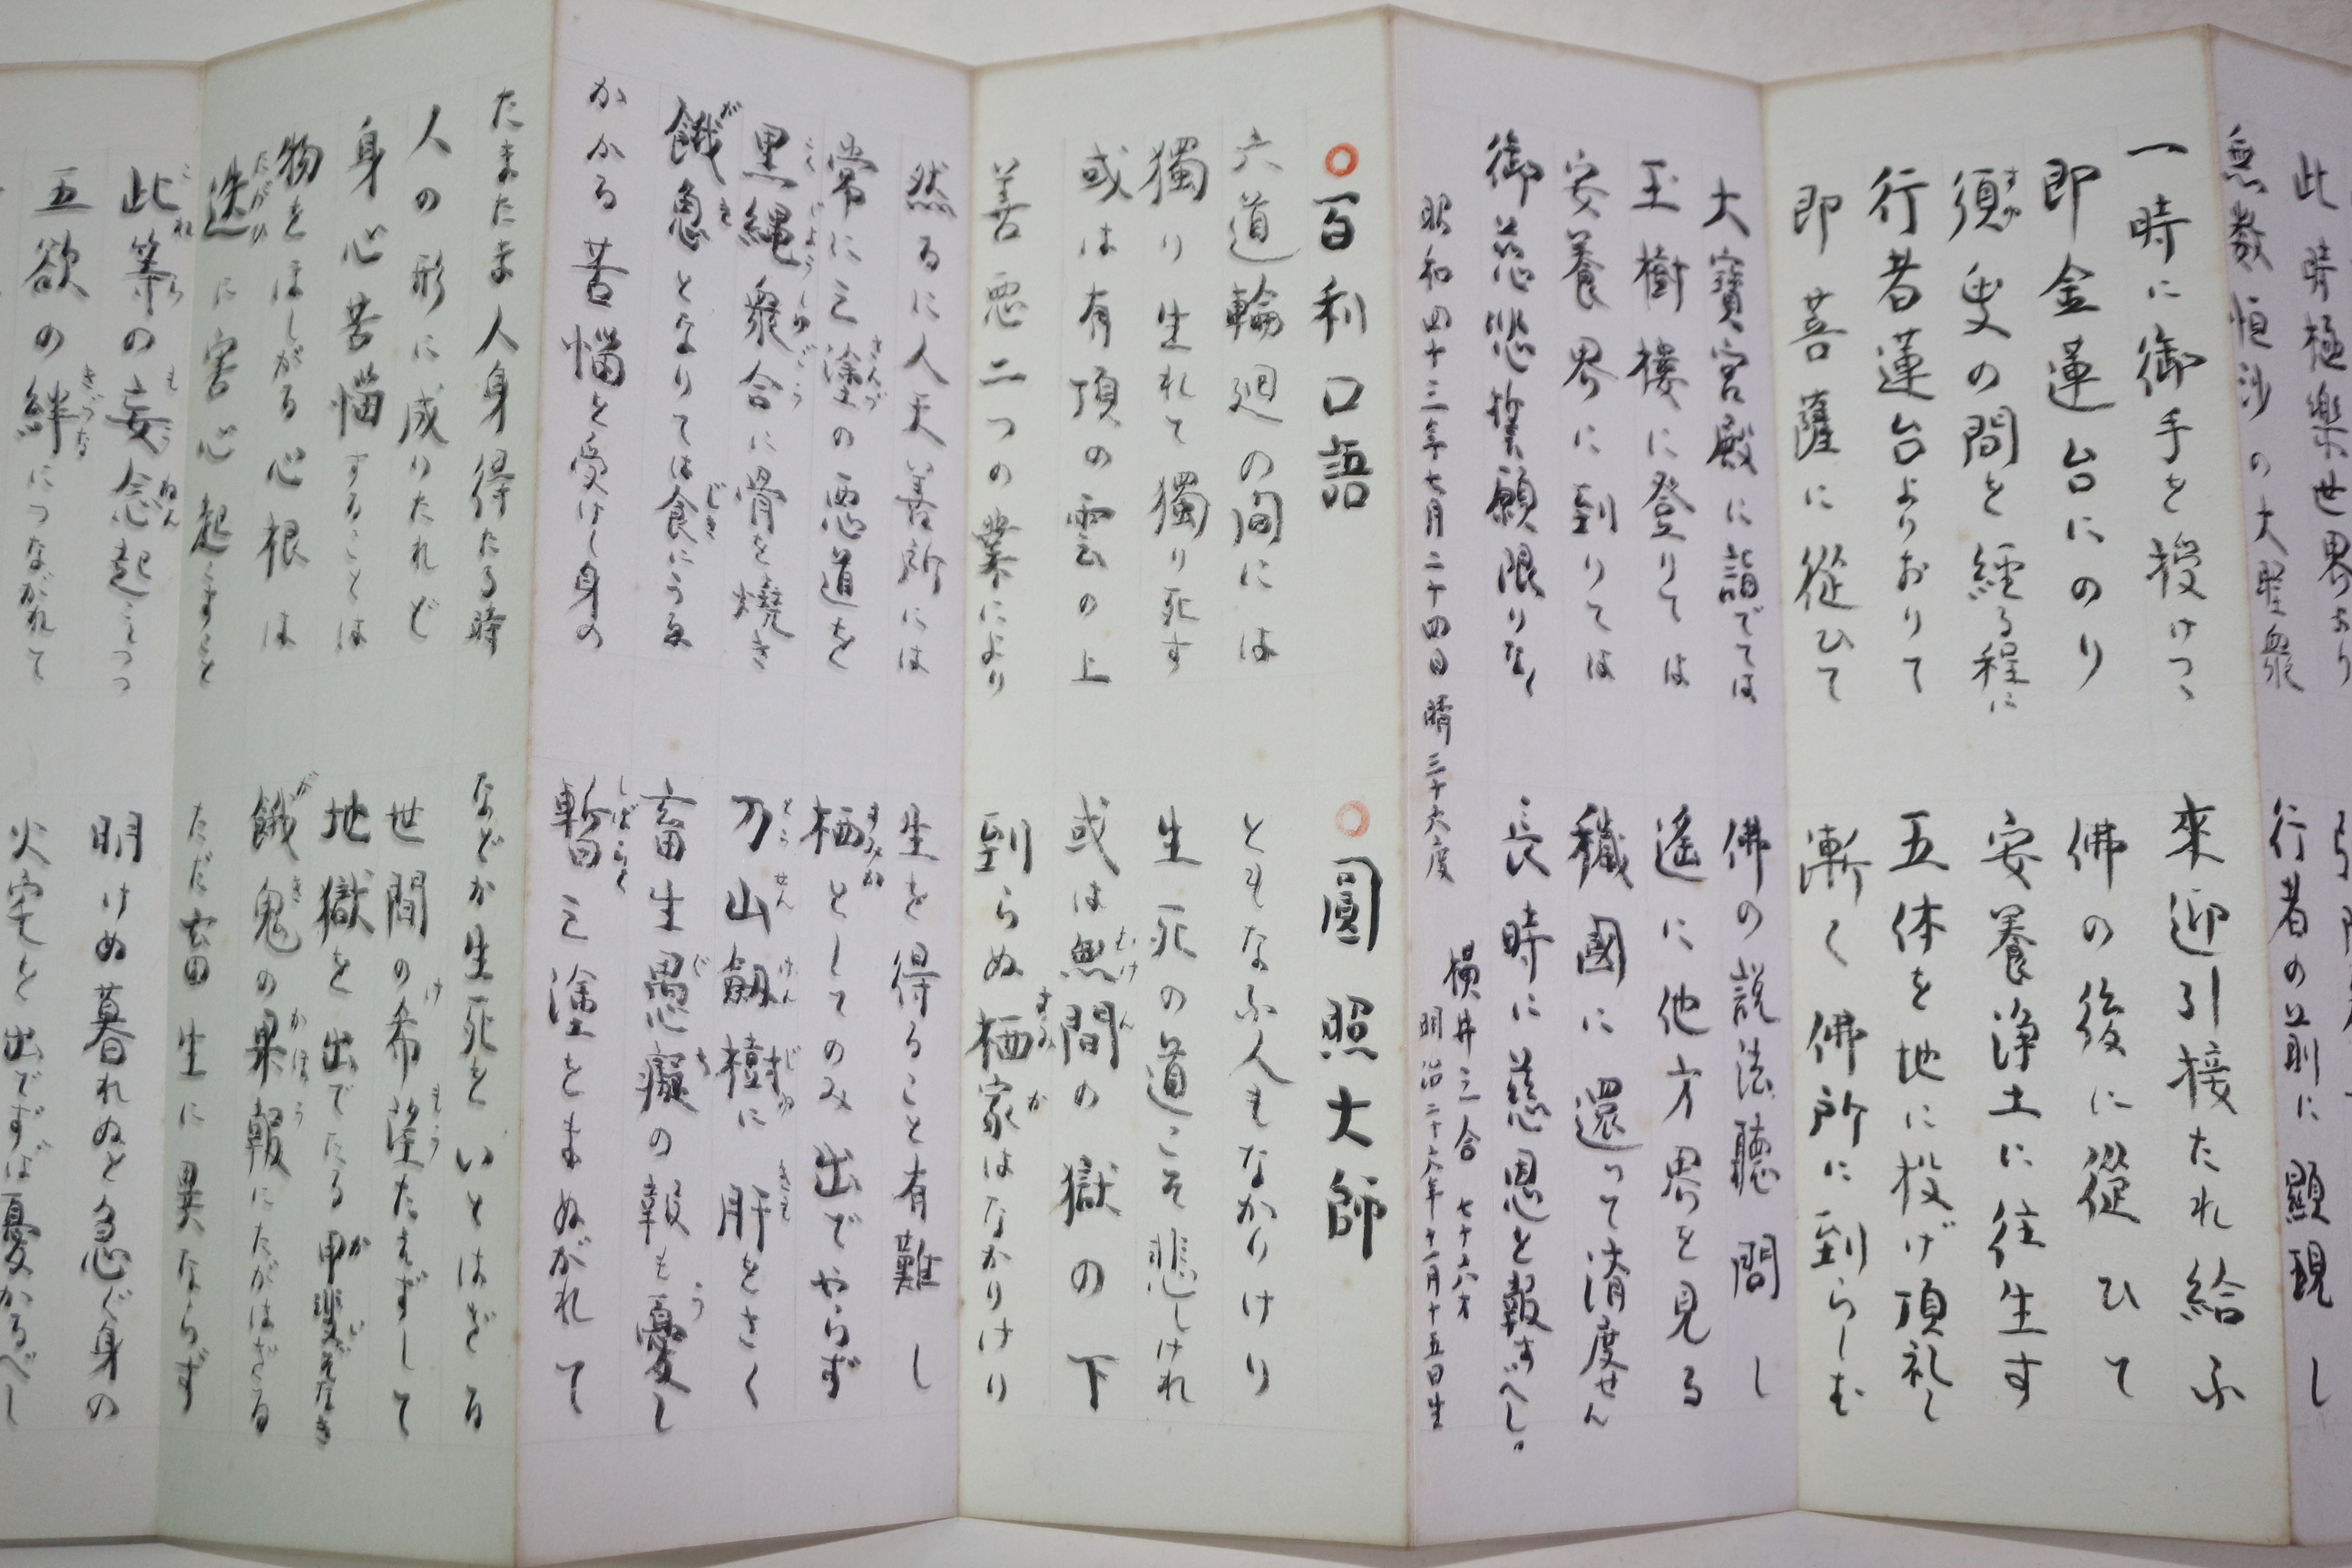 此時極楽世界より
無数恒沙の大聖衆
行者の前に顕現し
一時に御手を授けつゝ
來迎引接たれ給ふ
即金蓮台にのり
佛の後に從ひて
須臾の間を經る程に
安養浄土に往生す
行者蓮台よりおりて
五体を地に投げ頂礼し
即菩薩に從ひて
漸く佛所に到らしむ
大寳宮殿に詣でては
佛の説法聽聞し
玉樹樓に登りては
遙に他方界を見る
安養界に到りては
穢國に還って済度せん
御慈悲誓願限りなく
長時に慈恩を報ずべし。
昭和四十三年七月二十四日 晴 三十六度
横井三合 七十六才
明治二十六年十一月十五日生
百利口語 圓照大師
六道輪廻の間には
ともなふ人もなかりけり
獨り生れて獨り死す
生死の道こそ悲しけれ
或は有頂の雲の上
或は無間の獄の下
善悪二つの業により
到らぬ栖家はなかりけり
然るに人天善所には
生を得ること有難し
常に三塗の悪道を
栖としてのみ出でやらず
黒縄衆合に骨を燒き
刀山劔樹に肝をさく
餓鬼となりては食にうゑ
畜生愚癡の報も憂し
かかる苦悩を受けし身の
暫三塗をまぬがれて
たまたま人身得たる時
などか生死をいとはざる
人の形に成りたれど
世間の希望たえずして
身心苦悩することは
地獄を出でたる甲斐ぞなき
物をほしがる心根は
餓鬼の果報にたがはざる
迭に害心起こすこと
ただ畜生に異ならず
此等の妄念起こしつつ
明けぬ暮れぬと急ぐ身の
五欲の絆につながれて
火宅を出でずば憂かるべし